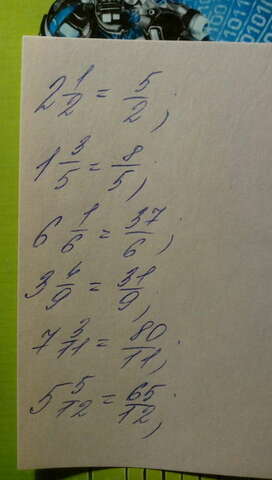 2 1/2 = 5/2;
1 3/5 = 8/5;
6 1/6 = 37/6;
3 4/9 = 31/9;
7 3/11 = 80/11;
5 5/12 = 65/12;